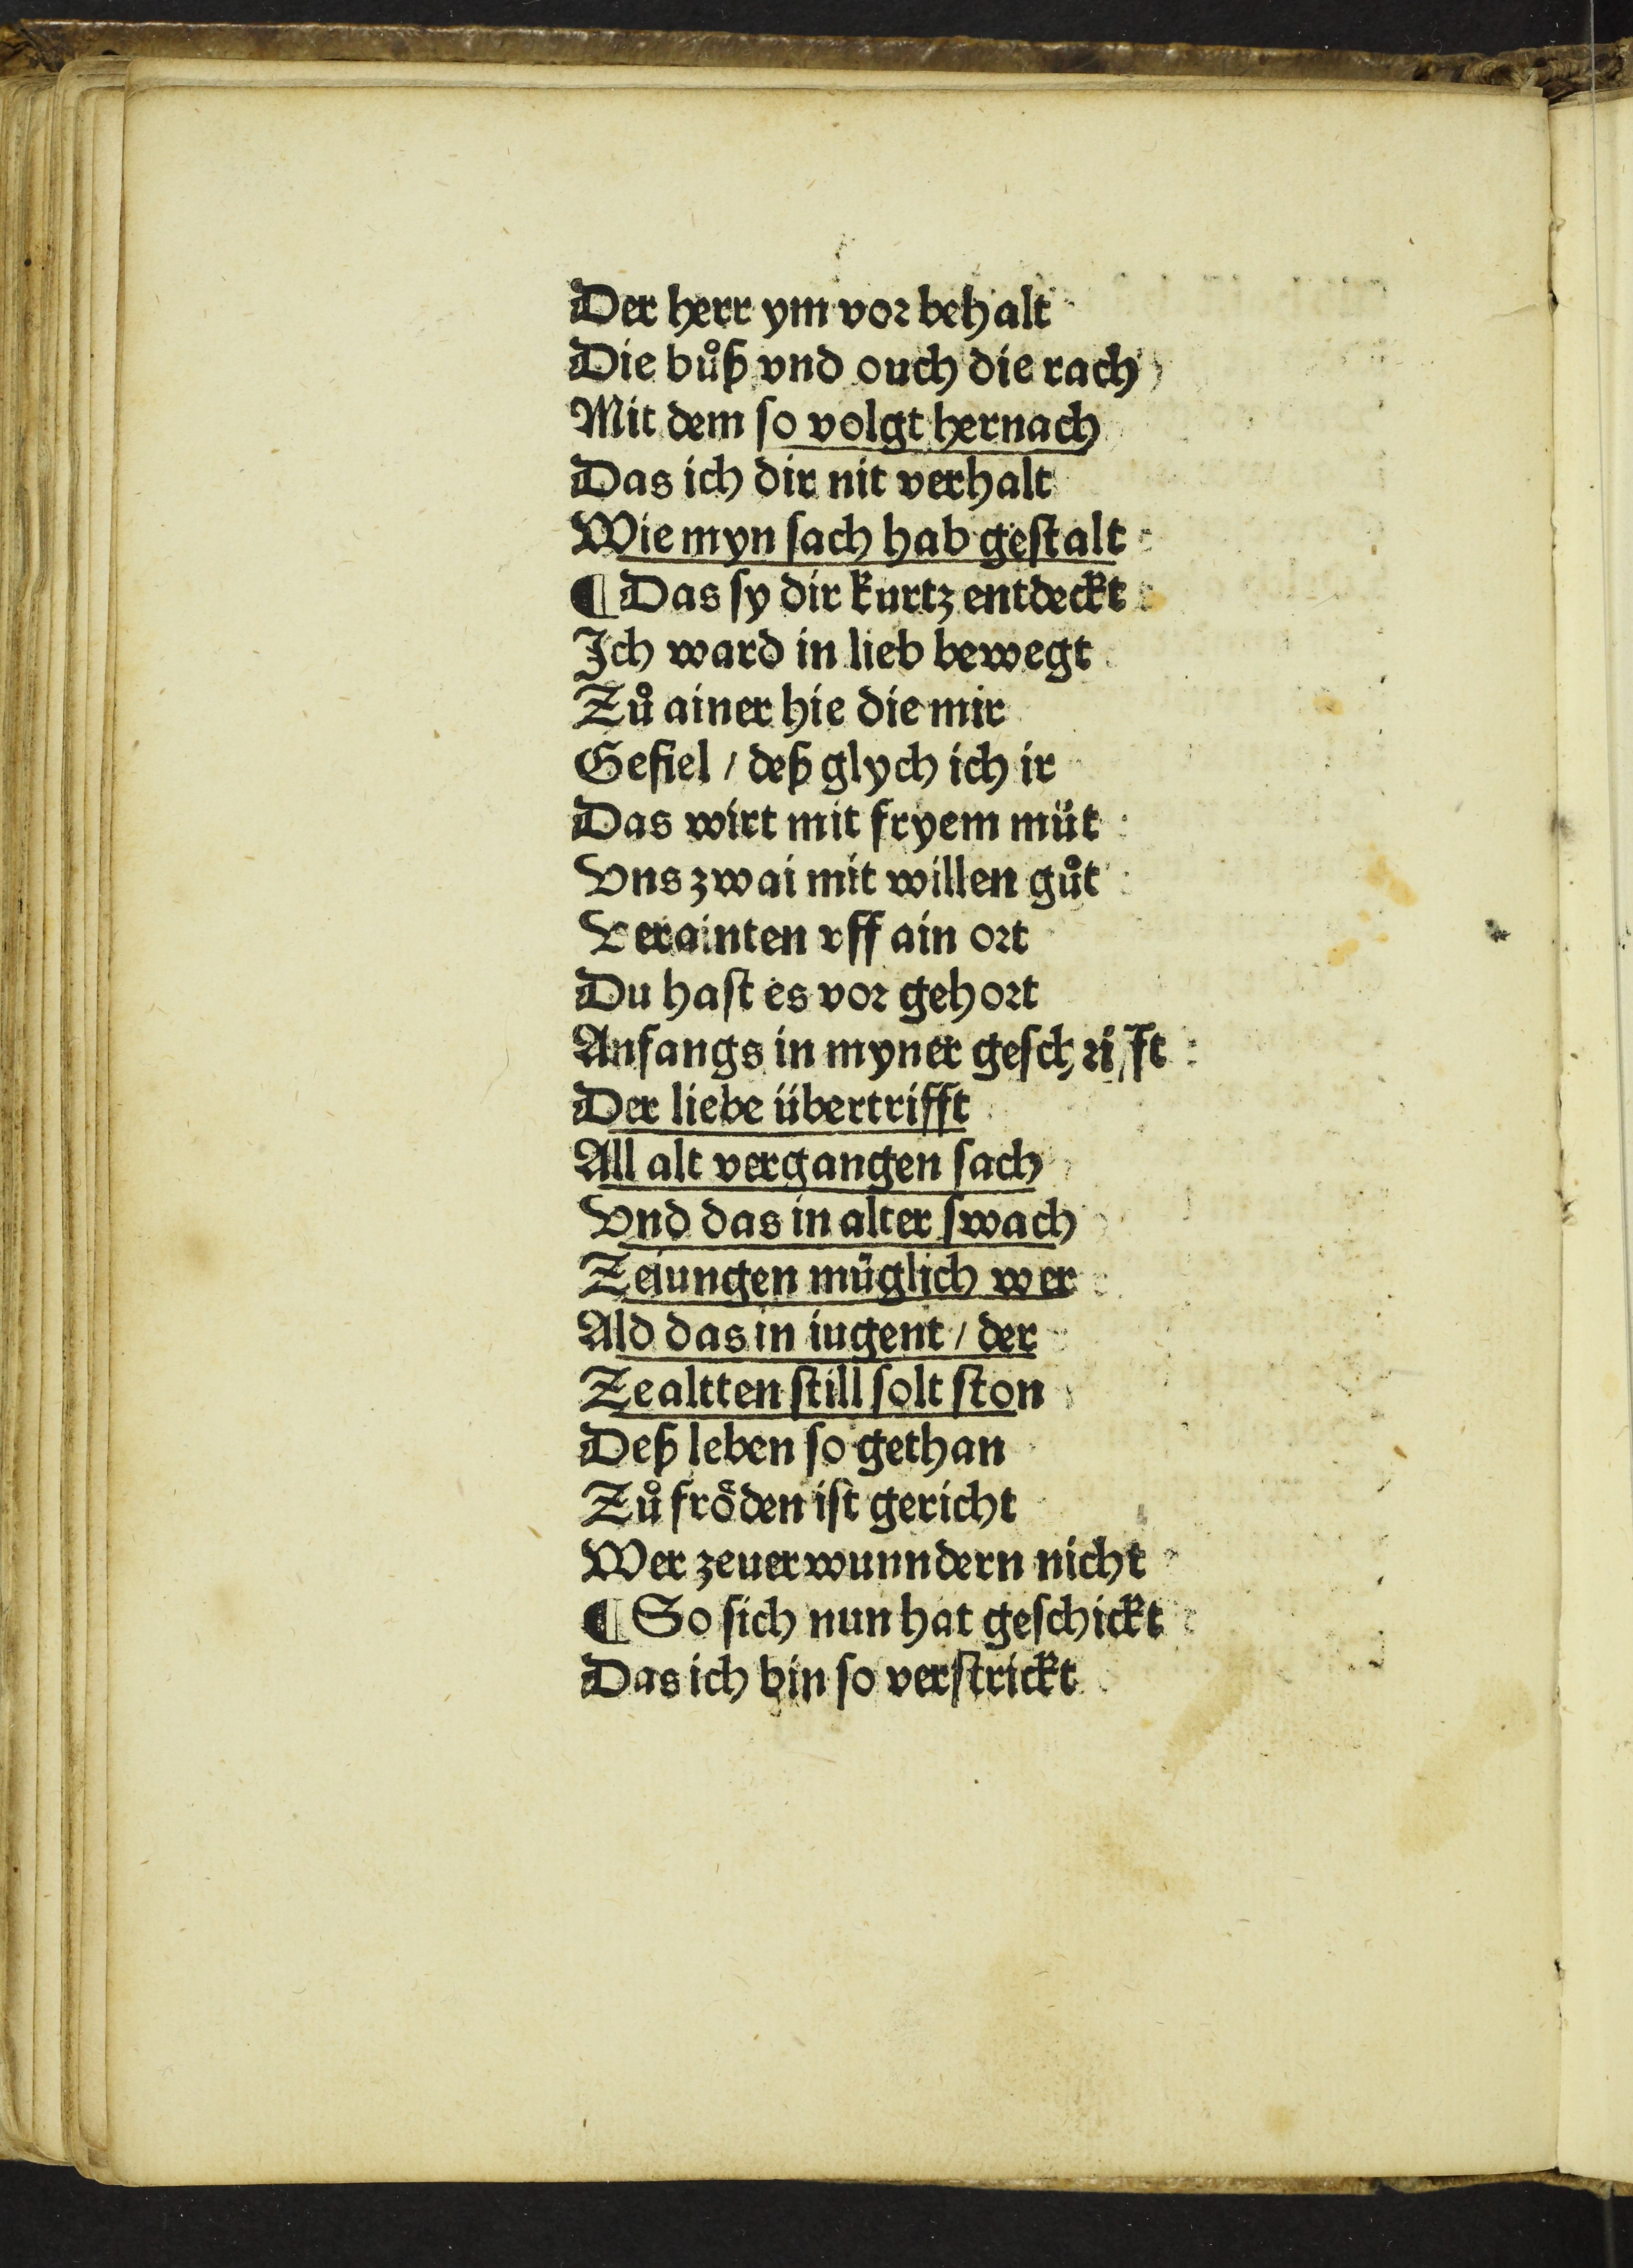 Der herr ym vor behalt
Die bůß vnd ouch die rach
Mit dem ſo volgt hernach
Das ich dir nit verhalt
Wie myn ſach hab geſtalt
¶ Das ſy dir kurtz entdeckt
Ich ward in lieb bewegt
Zů ainer hie die mir
Gefiel / deß glych ich ir
Das wirt mit fryem müt
Vns zwai mit willen gůt
Verainten vff ain ort
Du haſt es vor gehort
Anfangs in myner geſchrifft
Der liebe übertrifft
All alt vergangen ſach
Vnd das in alter ſwach
Zeiungen müglich wer
Ald das in iugent / der
Zealtten ſtill ſolt ſton
Deß leben ſo gethan
Zů fröden iſt gericht
Wer zeuerwunndern nicht
¶ So ſich nun hat geſchickt
Das ich bin ſo verſtrickt